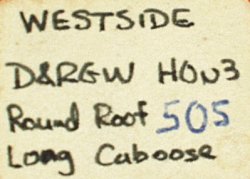 WESTSIDE
D&RGW HOn3
Round Roof 505
Long Caboose